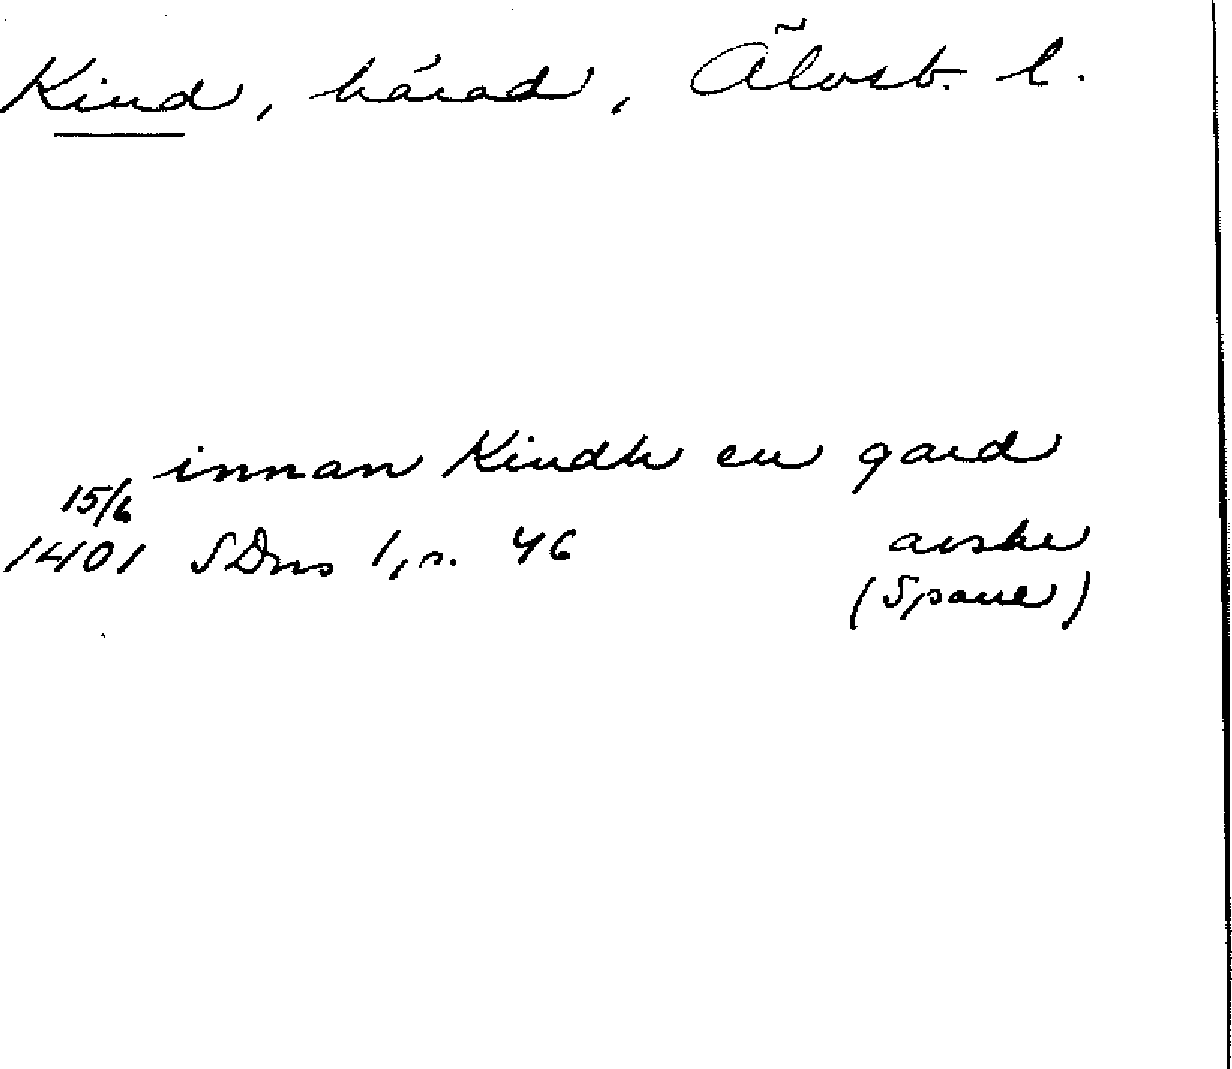 Kind, härad, Älvsb. l.
innan Kindh en gard
15/6
1401 SDns 1, s. 46 avskr
(Spare)